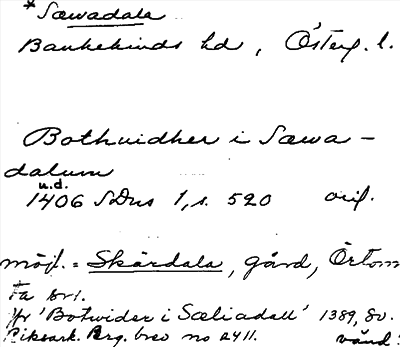 * Sæwadala
Bankekinds hd, Österg. l.
Bothuidher i Sæwa-
dalum
u.d.
1406 SDns 1, s. 520 orig.
möjl. = Skärdala, gård, Örtom
ta sn.
Jfr 'Botwider i Sæliadall' 1389, 80.
Riksark. Perg. brev no 2411.
vänd!